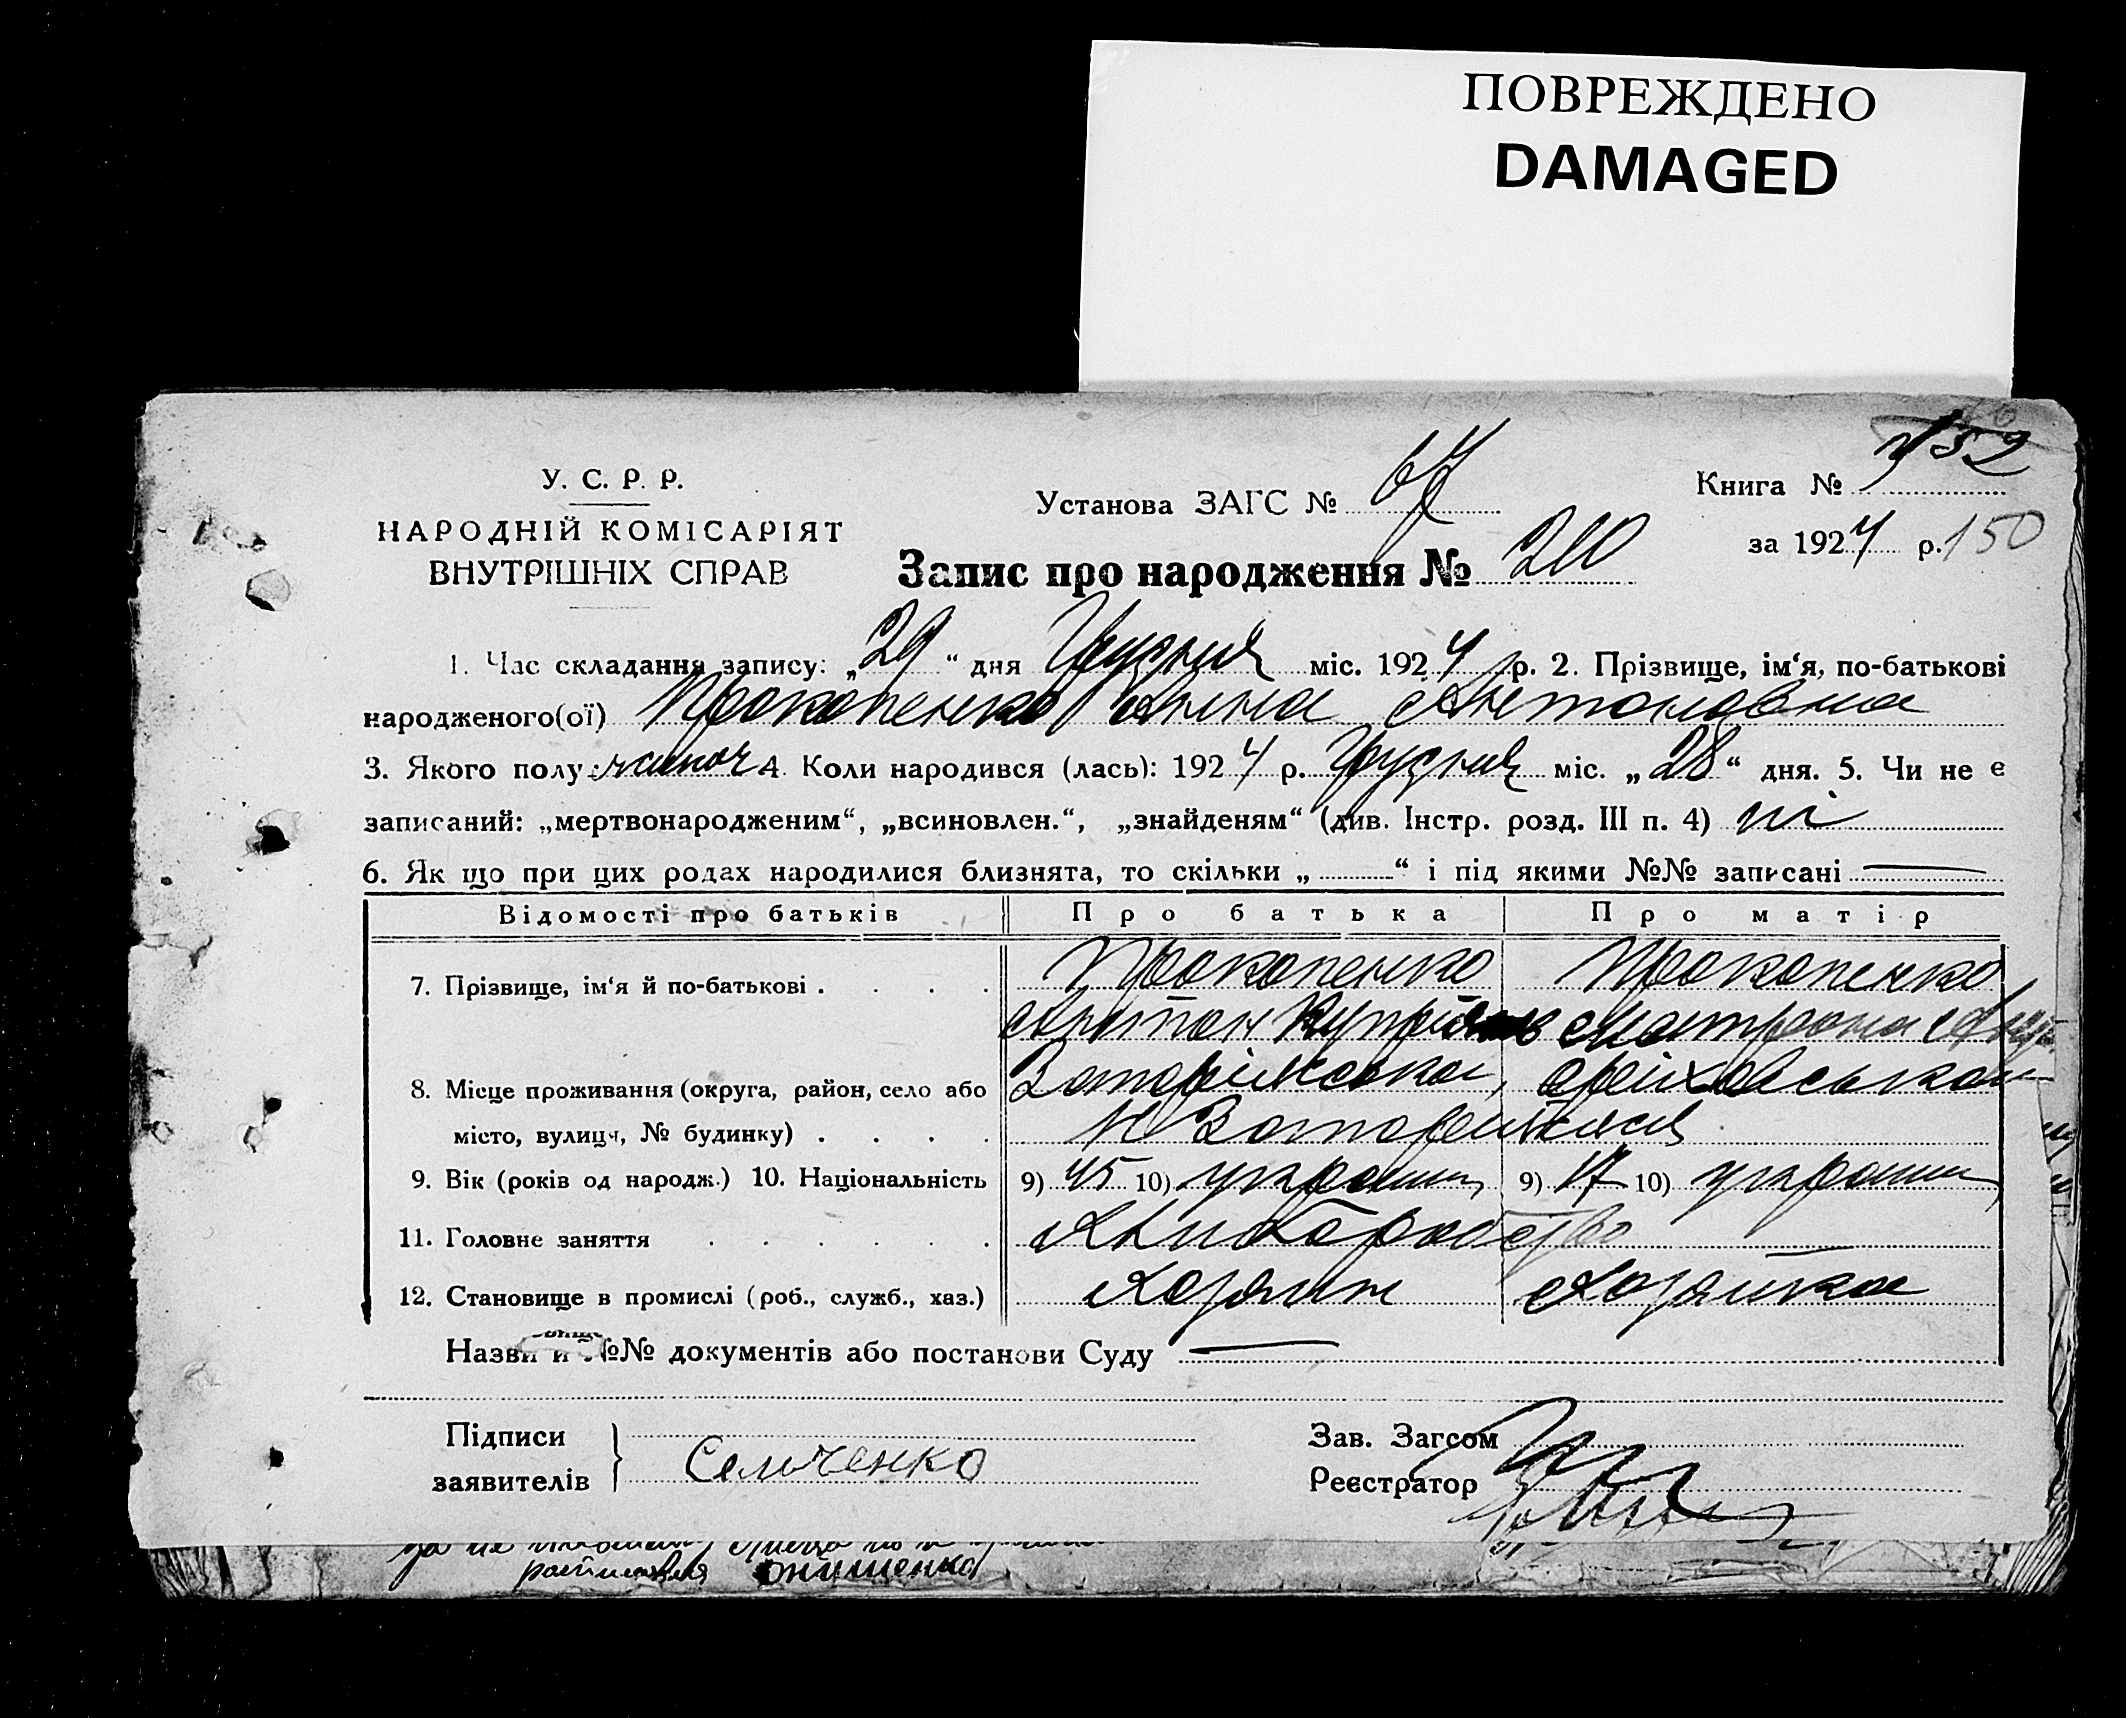 ПОВРЕЖДЕНО
DAMAGED
У. С. Р. Р.
НАРОДНІЙ КОМІСАРІЯТ
ВНУТРІШНІХ СПРАВ
Установа ЗАГС №
Книга № 152
за 1924 р. 150
Запис про народження № 210
1. Час складання запису: „29“ дня Грудня міс. 1924 р. 2. Прізвище, ім‘я, по-батькові
народженого(ої) Прокопенко Анна Антоновна
3. Якого полу: жиноч 4. Коли народився (лась): 1924 р. Грудня міс. „28“ дня. 5. Чи не є
записаний: „мертвонародженим“, „всиновлен.“, „знайденям“ (див. Інстр. розд. III п. 4) ні
6. Як що при цих родах народилися близнята, то скільки „ “ і під якими №№ записані —
Відомості про батьків Про батька Про матір
7. Прізвище, ім‘я й по-батькові . . . . Прокопенко Прокопенко
Антон Мотрона
8. Місце проживання (округа, район, село або Запоріжська,
місто, вулиця, № будинку) . . . .
9. Вік (років од народж.) 10. Національність 9) 45 10) україн 9) 17 10) україн
11. Головне заняття . . . . . . Хліборобство
12. Становище в промислі (роб., служб., хаз.) Хозяин Хозяйка
Назви й №№ документів або постанови Суду —
Підписи
заявителів } Семченко
Зав. Загсом
Реєстратор
Онищенко